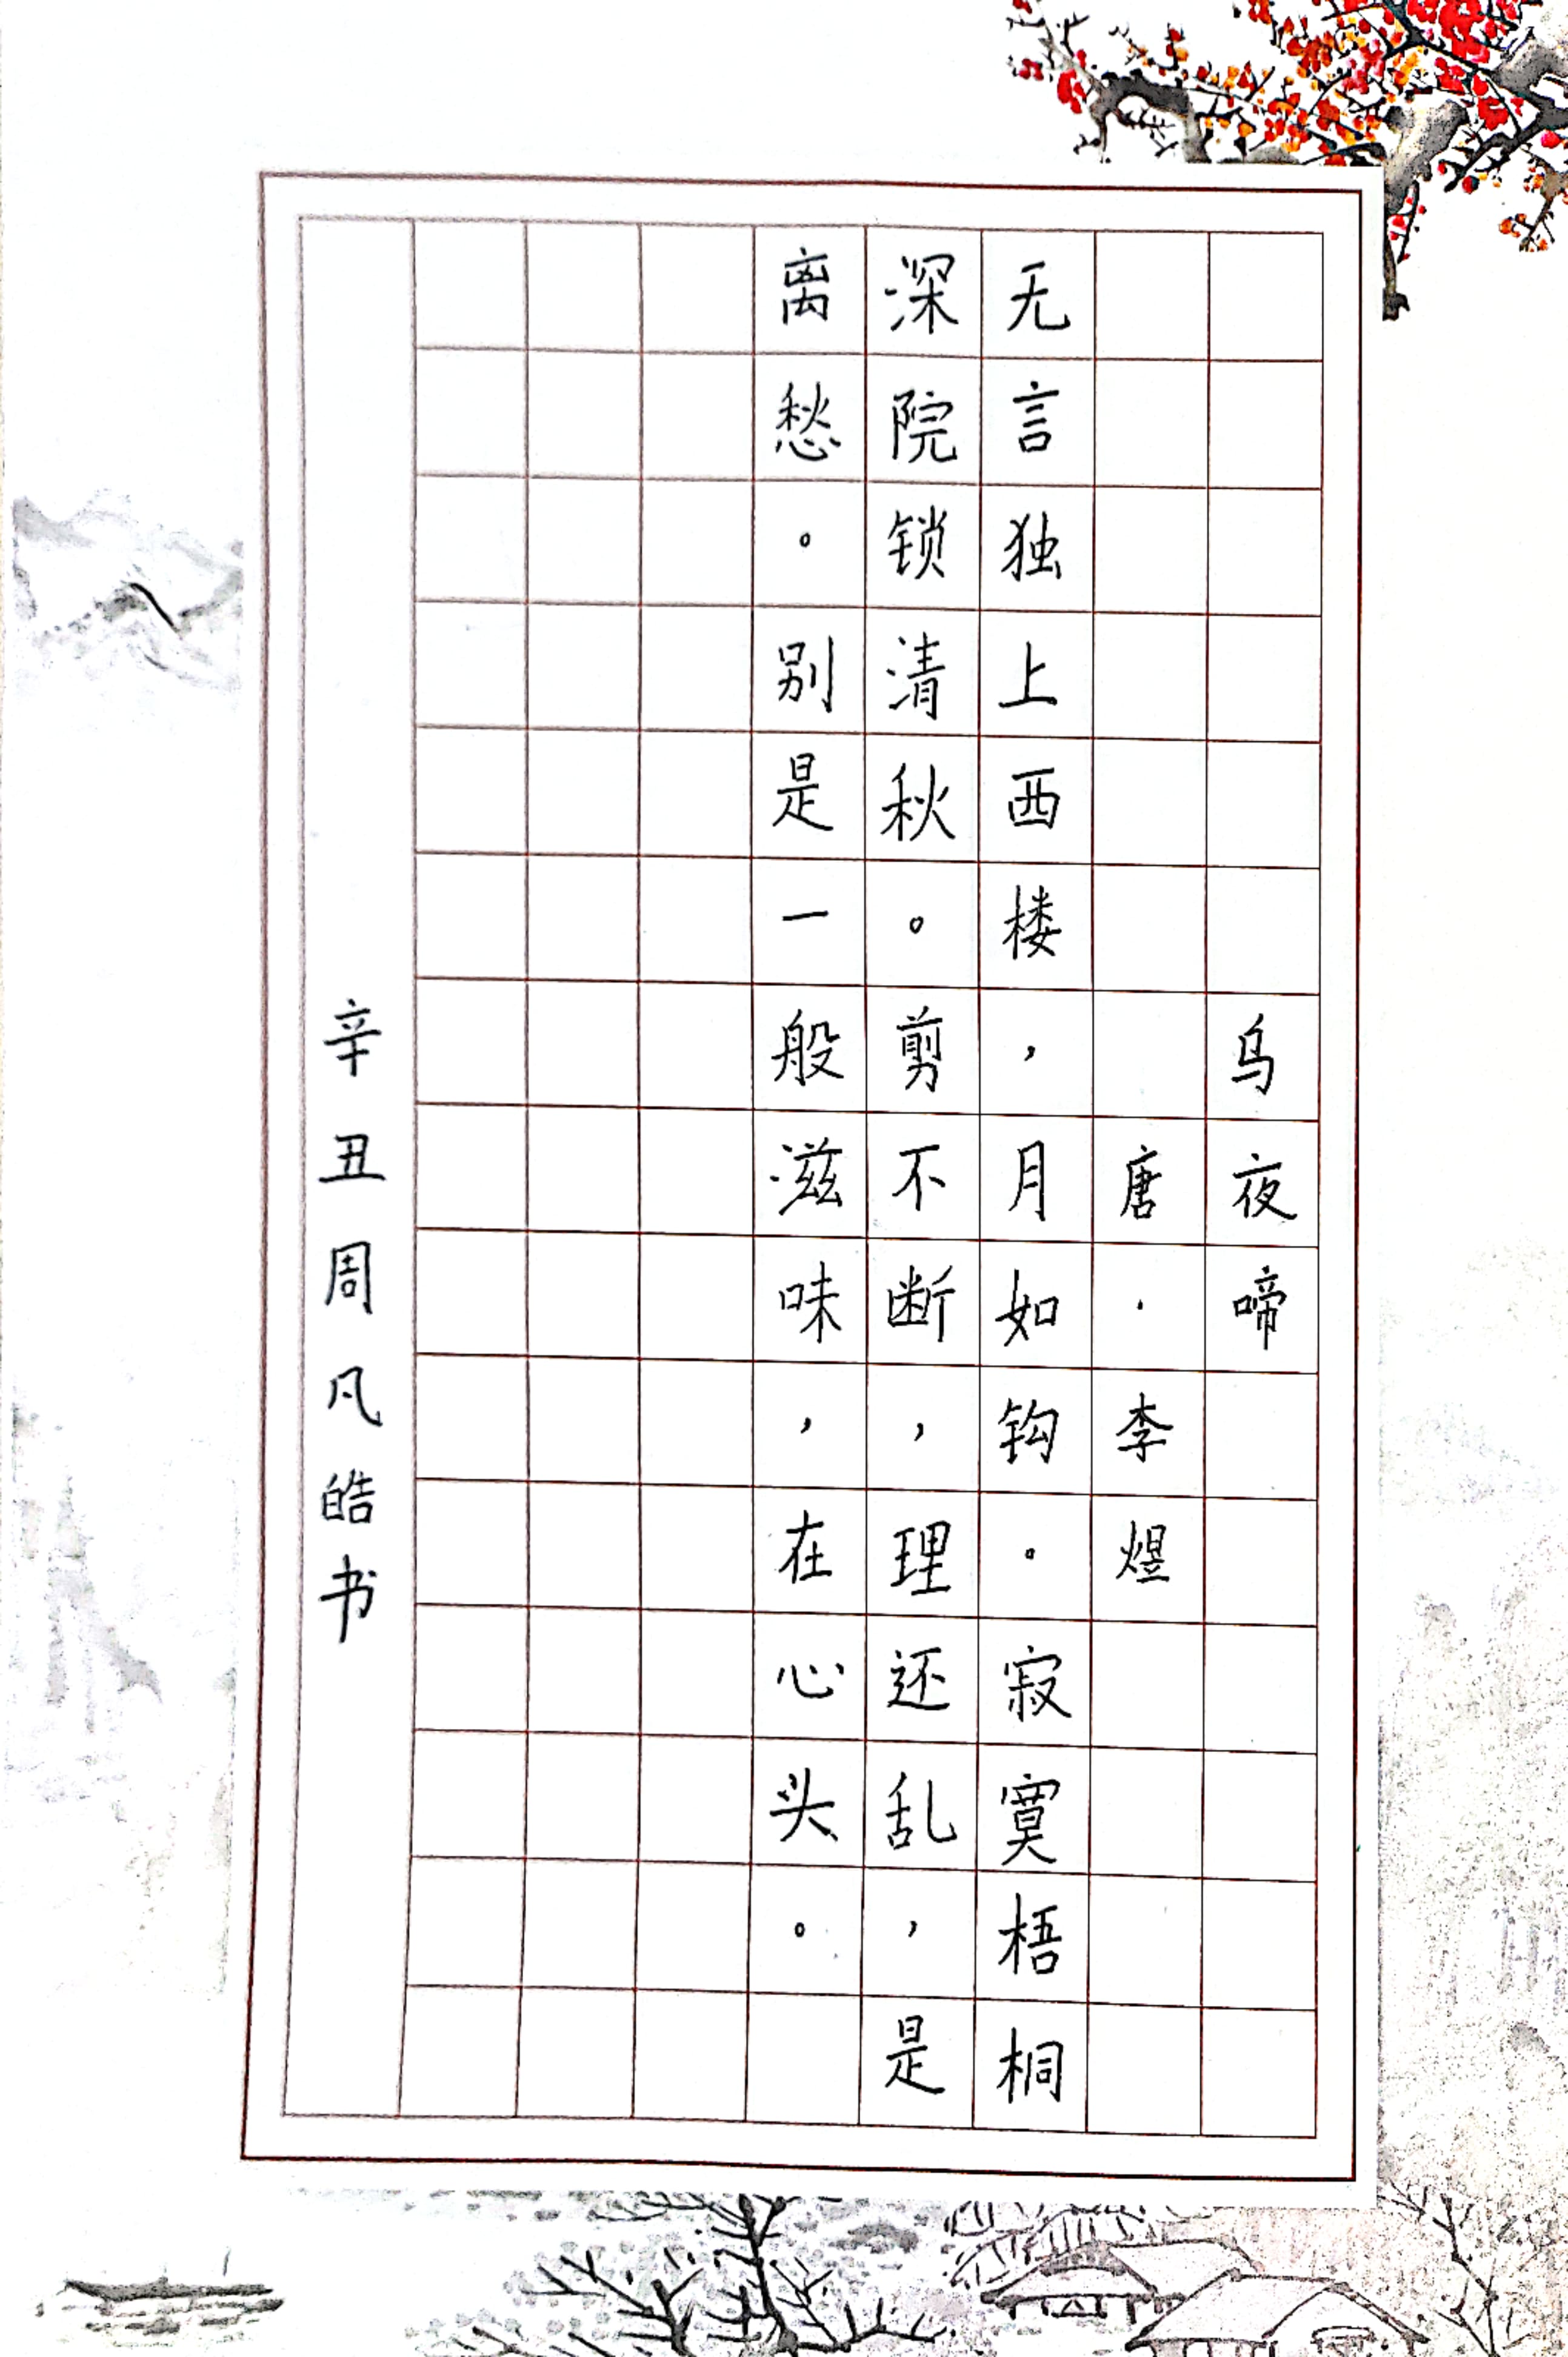 乌夜啼
唐·李煜
无言独上西楼，月如钩。寂寞梧桐
深院锁清秋。剪不断，理还乱，是
离愁。别是一般滋味，在心头。
辛丑周凡皓书